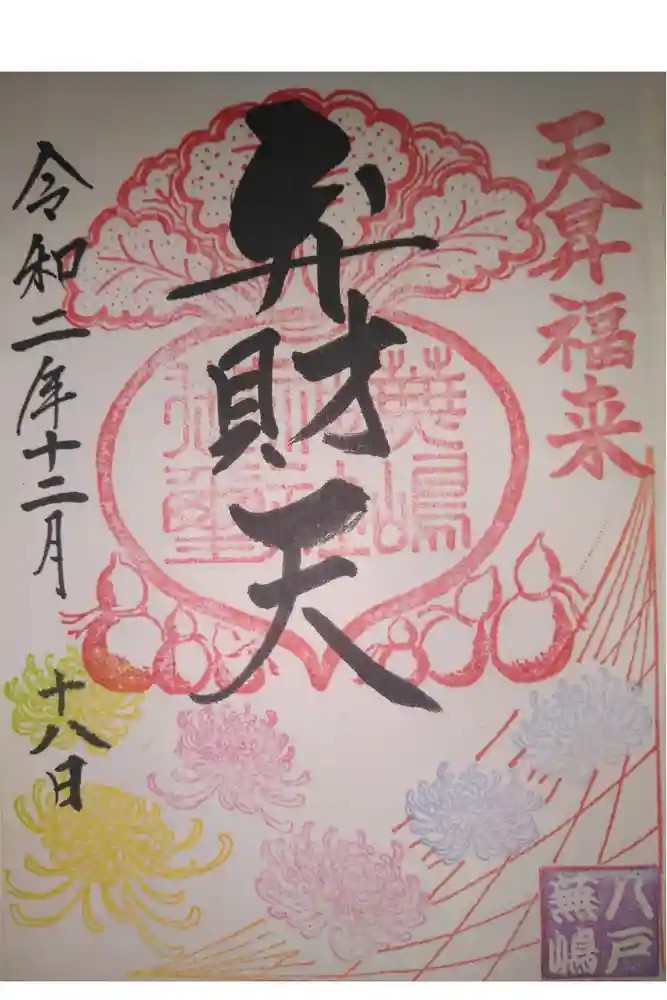 天昇福来
弁財天
蕪嶋神社
令和二年十二月
十八日
八戸
蕪嶋